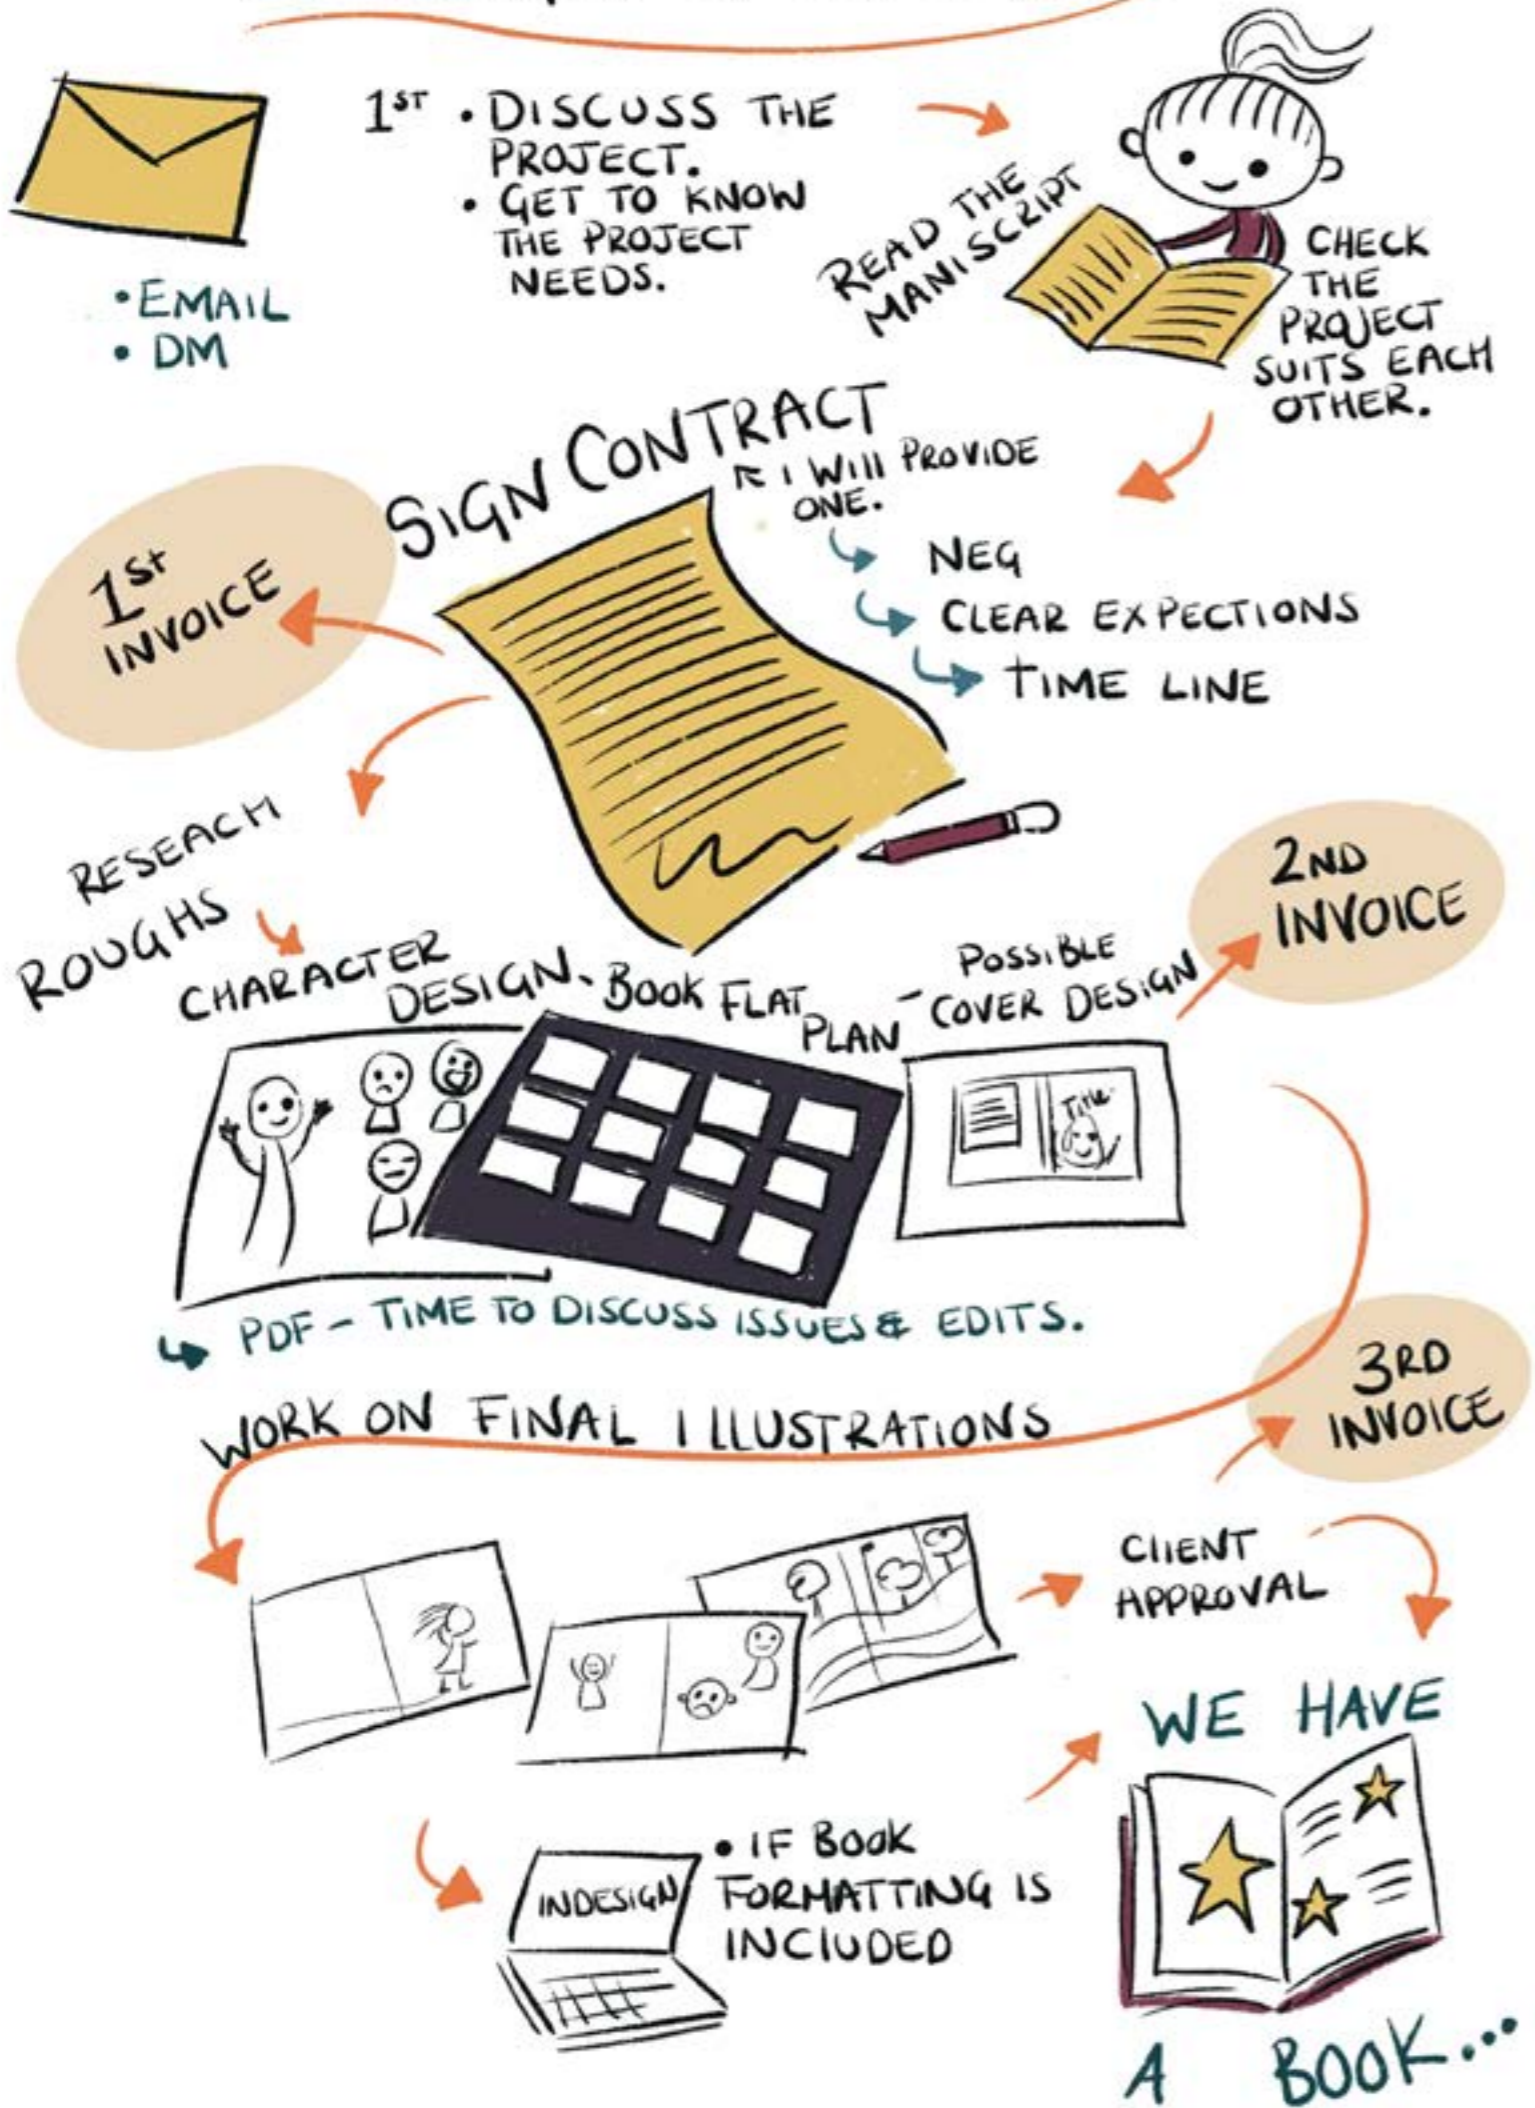 1ST • DISCUSS THE
PROJECT.
• GET TO KNOW
THE PROJECT
NEEDS.
• EMAIL
• DM
READ THE
MANISCRIPT
CHECK
THE
PROJECT
SUITS EACH
OTHER.
SIGN CONTRACT
I WILL PROVIDE
ONE.
NEG
CLEAR EXPECTIONS
TIME LINE
1ST
INVOICE
RESEACH
ROUGHS
CHARACTER
DESIGN - BOOK FLAT
PLAN -
POSSIBLE
COVER DESIGN
2ND
INVOICE
Title
PDF - TIME TO DISCUSS ISSUES & EDITS.
3RD
INVOICE
WORK ON FINAL ILLUSTRATIONS
CLIENT
APPROVAL
WE HAVE
INDESIGN
• IF BOOK
FORMATTING IS
INCLUDED
A BOOK...